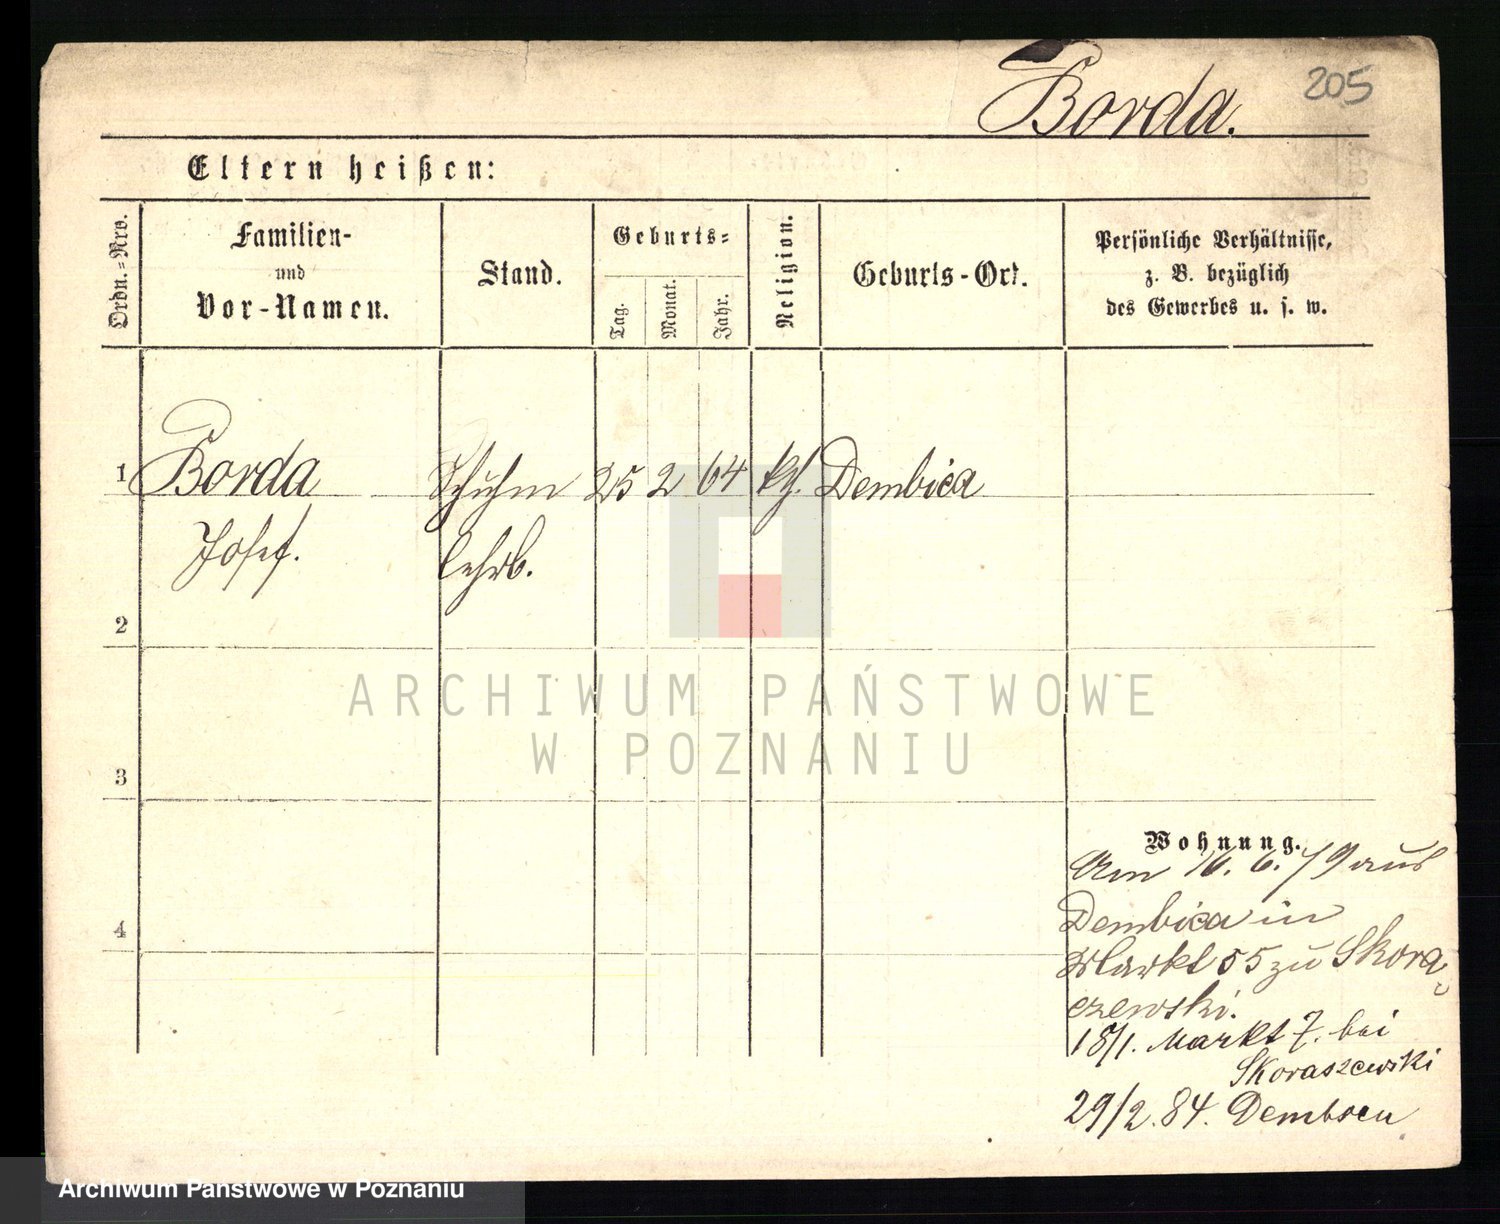 Borda.
205
Eltern heißen:
Ordn.-Nro.
Familien-
und
Vor-Namen.
Stand.
Geburts-
Tag.
Monat.
Jahr.
Religion.
Geburts-Ort.
Persönliche Verhältnisse,
z. B. bezüglich
des Gewerbes u. s. w.
1 Borda Schuhm 25 2 64 kth. Dembica
Josef. lehrb.
2
3
4
Wohnung.
Am 16. 6. 79 aus
Dembica in
Markt 55 zu Skora-
czewski.
18/1. Markt 7. bei
Skoraszewski
29/2. 84. Dembsen
ARCHIWUM PAŃSTWOWE
W POZNANIU
Archiwum Państwowe w Poznaniu